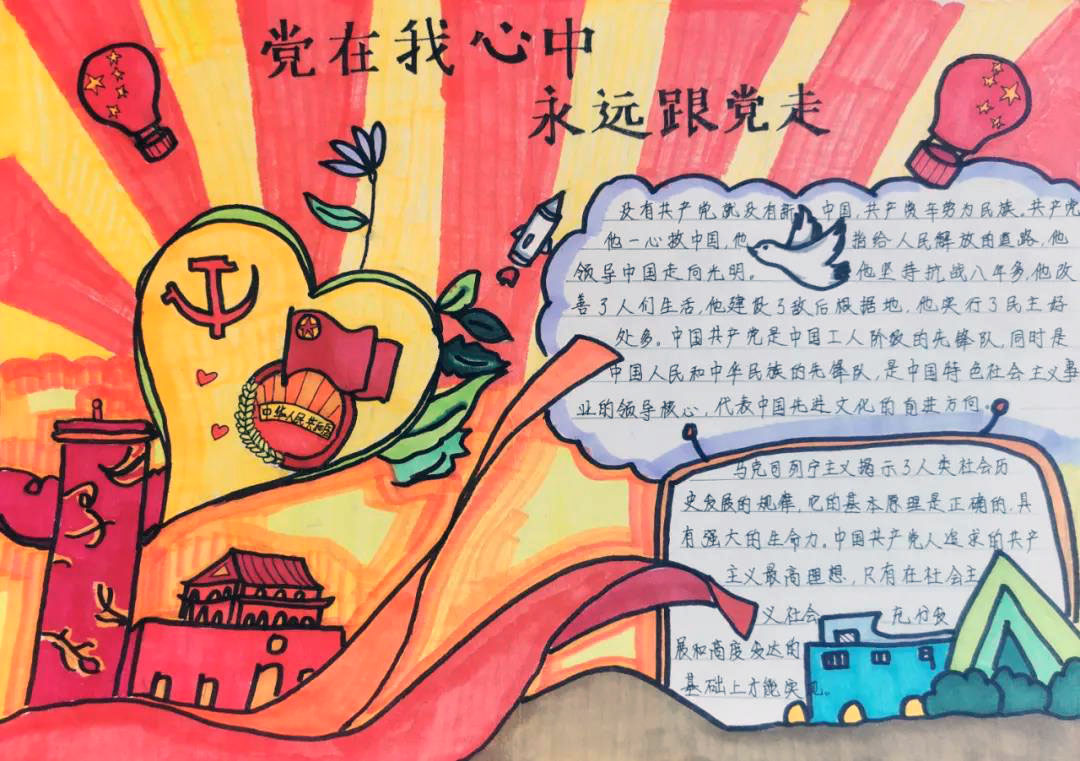 党在我心中
永远跟党走
中华人民共和国
没有共产党就没有新中国，共产党辛劳为民族。共产党
他一心救中国，他指给人民解放的道路，他
领导中国走向光明。他坚持抗战八年多，他改
善了人们生活，他建设了敌后根据地，他实行了民主好
处多。中国共产党是中国工人阶级的先锋队，同时是
中国人民和中华民族的先锋队，是中国特色社会主义事
业的领导核心，代表中国先进文化的前进方向。
马克司列宁主义揭示了人类社会历
史发展的规律，它的基本原理是正确的，具
有强大的生命力。中国共产党人追求的共产
主义最高理想，只有在社会主
义社会充分发
展和高度发达的
基础上才能实现。